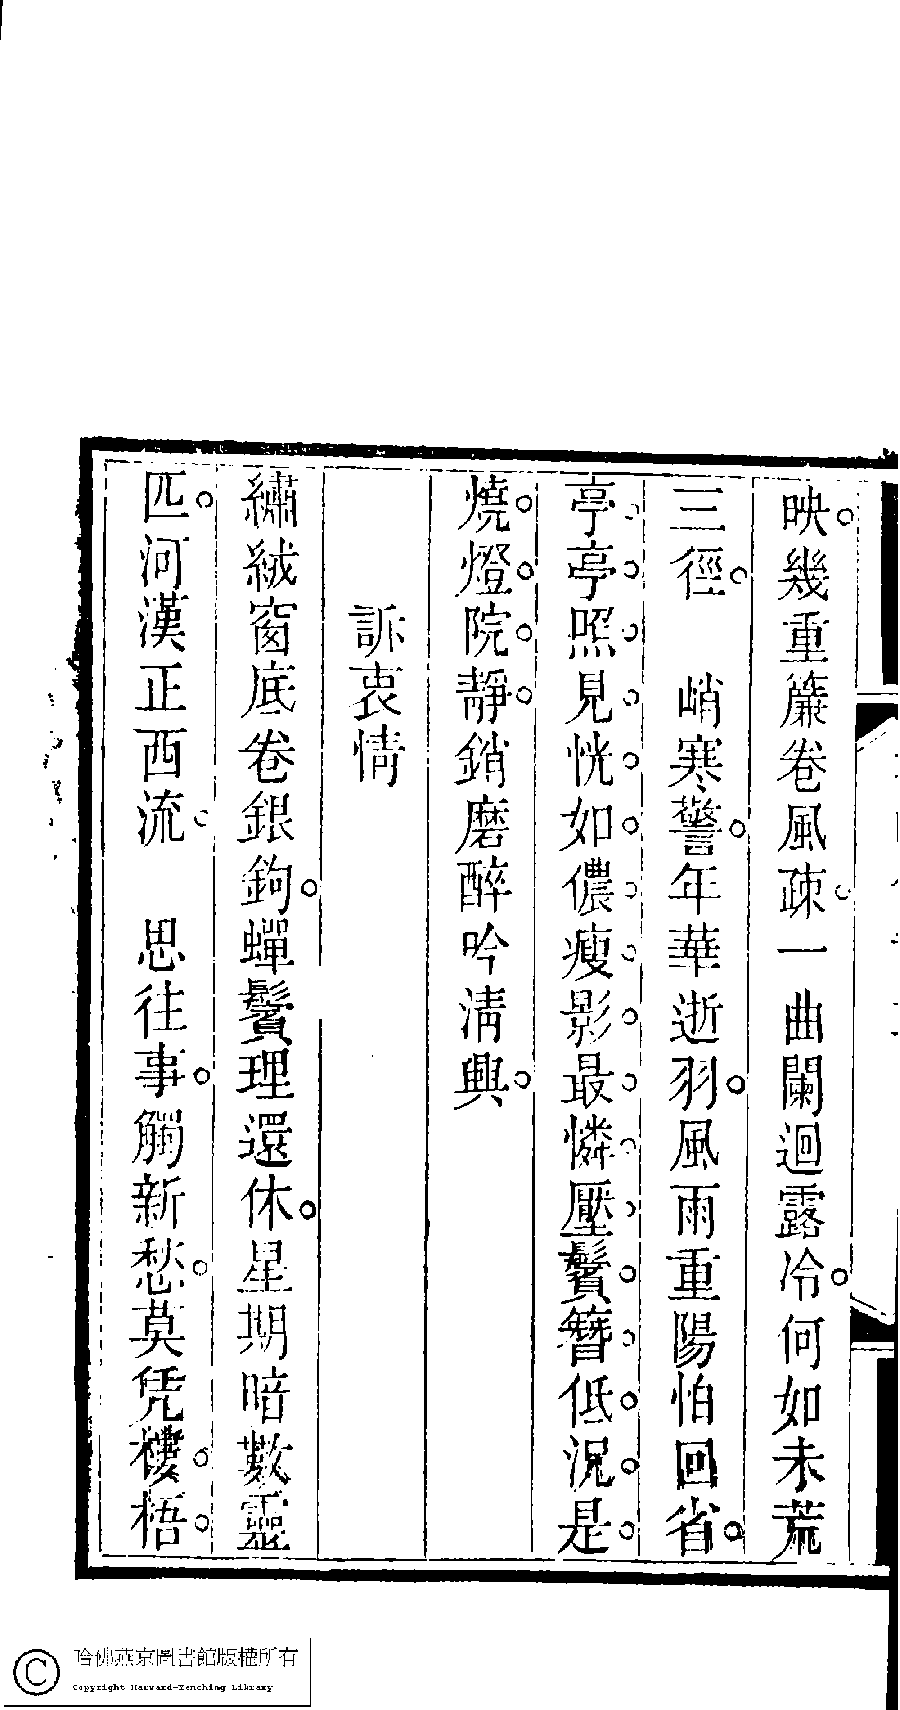 映。幾重簾卷風疎。一曲闌迴露冷。何如未荒
三徑。　峭寒警。年華逝羽。風雨重陽怕回省。
亭亭照見恍如儂瘦影最憐壓鬢簪低。況是。
燒燈院靜銷磨醉吟清興。
訴衷情
繡絨窗底卷銀鉤。蟬鬢理還休。星期暗數靈
匹。河漢正西流。　思往事。觸新愁。莫凭樓。梧。
哈佛燕京圖書館版權所有
Copyright Harvard-Yenching Library